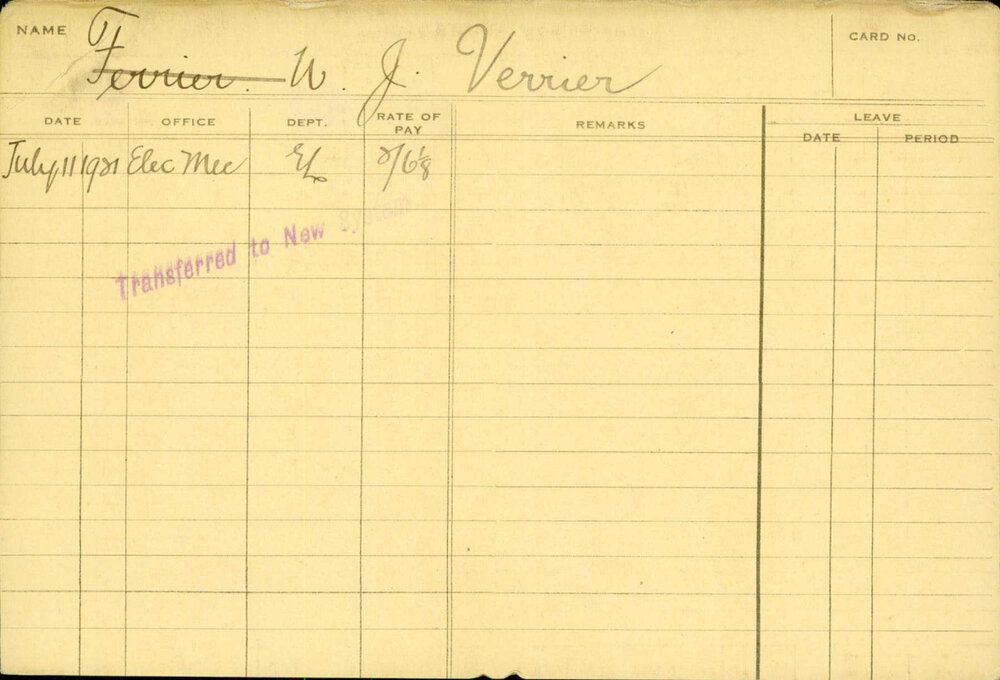 NAME Ferrier. W. J. Verrier CARD No.
DATE OFFICE DEPT. RATE OF PAY REMARKS LEAVE
DATE PERIOD
July 11 1921 Elec Mec EL 2/6⅛
Transferred to New System